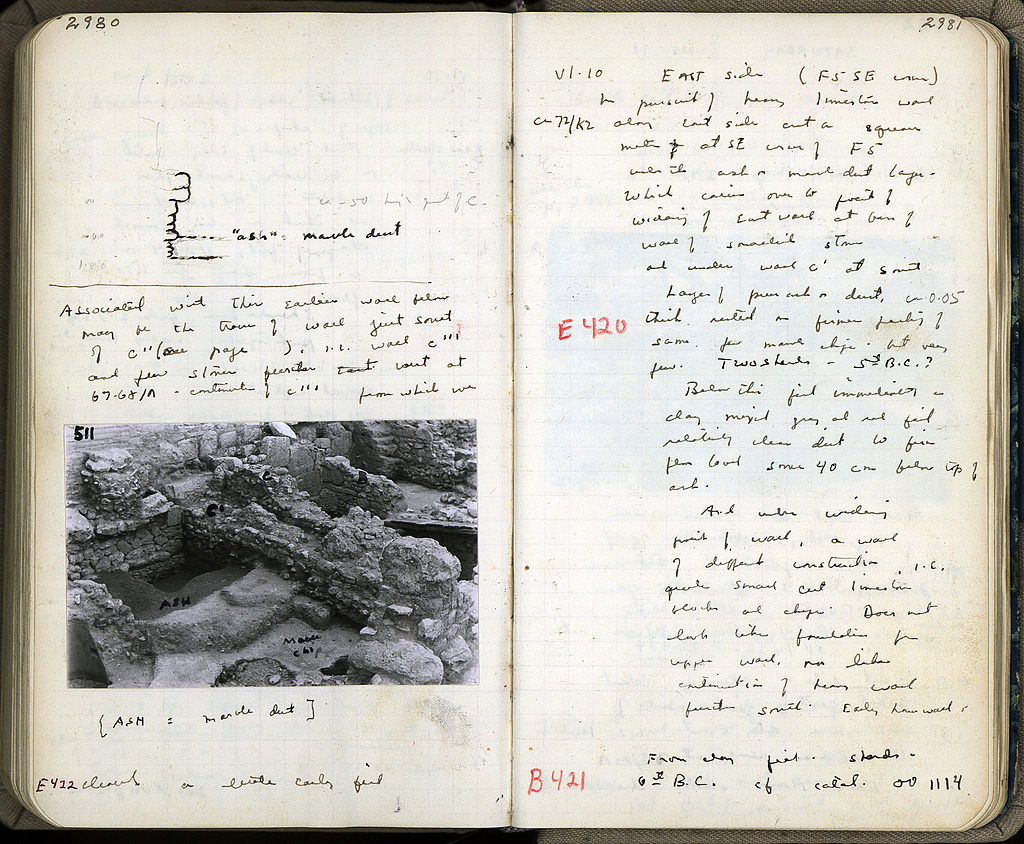 2980
ca -50 his part of C.
"ash" = marble dust
Associated with this earlier wall below
may be the trace of wall just south
of C'' (see page ), i.e. wall C'''
and few stones further out at
67-68/A - continuation of C''' from which we
511
C
B
C'
ASH
Marble
chip
[ASH = marble dust]
E422 cleared a little early fill
2981
VI.10 EAST side (F5 SE corner)
In pursuit of heavy limestone wall
ca 72/K2 along East side cut a square
meter at SE corner of F5
under the ash or marble dust layer -
which carries over to point of
widening of East wall at base of
wall of smallish stone
and under wall C' at south
Layer of pure ash or dust, ca 0.05
E 420 thick rested on former packing of
same, few marble chips but very
few. Two sherds - 5th B.C.?
Below this fill immediately a
clay mixed grey and red fill
relatively clean down to firm
floor level some 40 cm below top of
ash.
And under widening
point of wall, a wall
of different construction, i.e.
quite small cut limestone
blocks and chips. Does not
look like foundation for
upper wall, nor like
continuation of heavy wall
further south. Early house wall?
From clay fill sherds -
B 421 6th B.C. cf catal. OO 1114